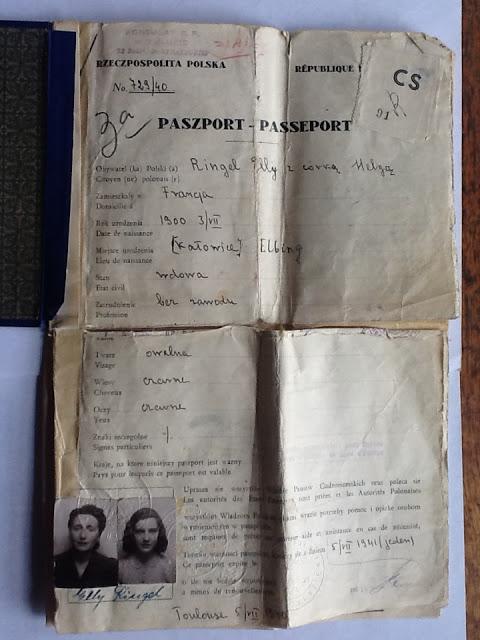 KONSULAT
RZECZPOSPOLITA POLSKA
RÉPUBLIQUE
CS
R
No. 729/40
Za
PASZPORT - PASSEPORT
Obywatel (ka) Polski (a) Ringel Elly z córką Helgą
Citoyen (ne) polonais (e)
Zamieszkały w Francja
Domicilié à
Rok urodzenia 1900 3/VII
Date de naissance
Miejsce urodzenia [Katowice] Elbing
Lieu de naissance
Stan wdowa
Etat civil
Zatrudnienie bez zawodu
Profession
Twarz owalna
Visage
Włosy czarne
Cheveux
Oczy czarne
Yeux
Znaki szczególne -/-
Signes particuliers
Kraje, na które niniejszy paszport jest ważny
Pays pour lesquels ce passeport est valable
Uprasza się wszystkie Władze Państw Cudzoziemskich oraz poleca się
Les autorités des États sont priées et les Autorités Polonaises
wszystkim Władzom w razie potrzeby pomoc i opiekę osobom
wymienionym w
sont requises de aide et assistance en cas de nécessité,
5/VII 1941 (jeden)
Ce passeport expire le
à moins de renouvellement.
Elly Ringel
Toulouse 5/VII